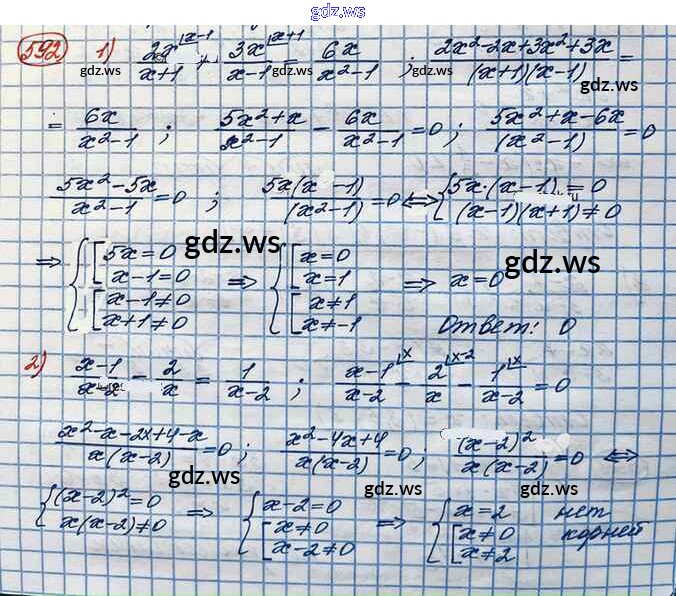 gdz.ws
592 1) 2x^{|x-1}/(x+1) + 3x^{|x+1}/(x-1) = 6x/(x²-1) ; (2x²-2x+3x²+3x)/((x+1)(x-1)) =
= 6x/(x²-1) ; (5x²+x)/(x²-1) - 6x/(x²-1) = 0 ; (5x²+x-6x)/(x²-1) = 0
(5x²-5x)/(x²-1) = 0 ; 5x(x-1)/(x²-1) = 0 ⇔ { 5x·(x-1) = 0
(x-1)(x+1) ≠ 0
⇒ { [ 5x = 0 ⇒ { [ x = 0 ⇒ x = 0
x-1 = 0 x = 1
[ x-1 ≠ 0 [ x ≠ 1
x+1 ≠ 0 x ≠ -1 Ответ: 0
2) (x-1)/(x-2) - 2/x = 1/(x-2) ; (x-1)^{|x}/(x-2) - 2^{|x-2}/x - 1^{|x}/(x-2) = 0
(x²-x-2x+4-x)/(x(x-2)) = 0 ; (x²-4x+4)/(x(x-2)) = 0 ; (x-2)²/(x(x-2)) = 0 ⇔
{ (x-2)² = 0 ⇒ { x-2 = 0 ⇒ { x = 2 нет
x(x-2) ≠ 0 [ x ≠ 0 [ x ≠ 0 корней
x-2 ≠ 0 x ≠ 2
gdz.ws gdz.ws gdz.ws
gdz.ws gdz.ws
gdz.ws gdz.ws gdz.ws
gdz.ws